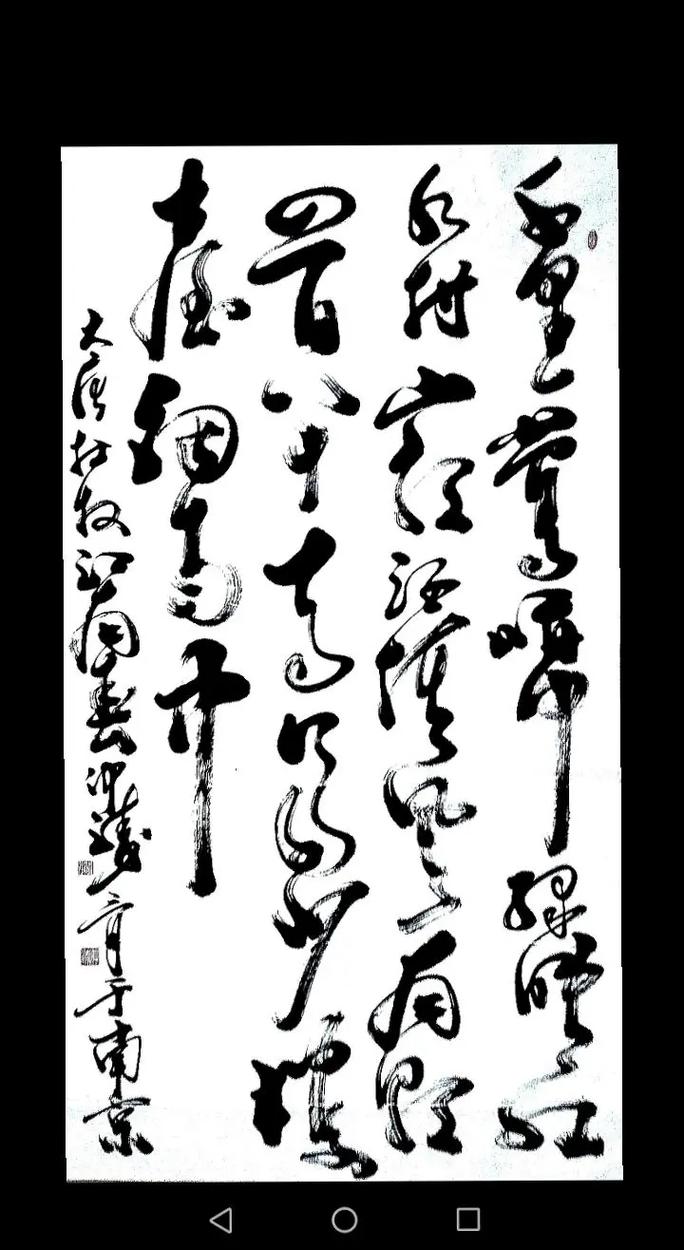 千里鶯啼緑映红
水村山郭酒旗風南朝
四百八十寺多少樓
臺烟雨中
大唐杜牧江南春
于南京